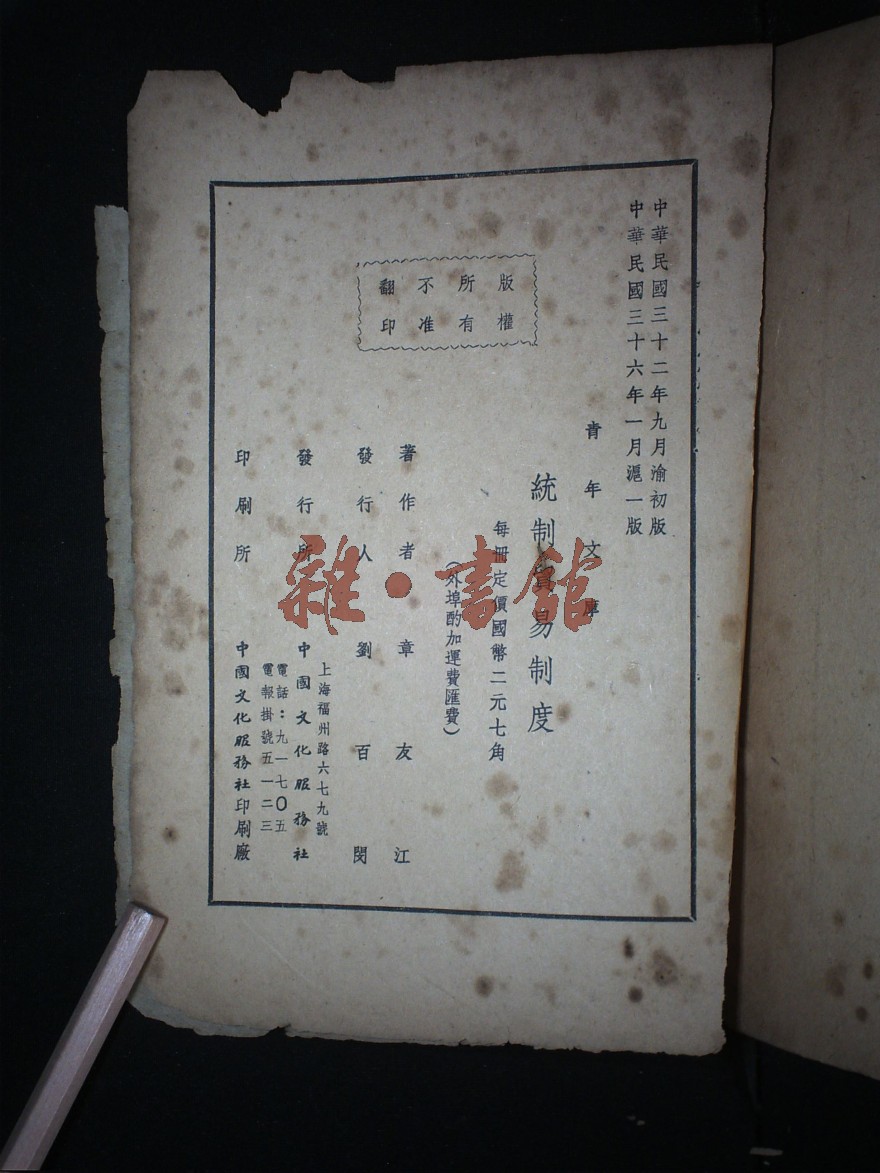 中華民國三十二年九月渝初版
中華民國三十六年一月滬一版
版權
所有
不准
翻印
青年文庫
統制貿易制度
每冊定價國幣二元七角
(外埠酌加運費匯費)
著作者 章友江
發行人 劉百閔
發行所 中國文化服務社
上海福州路六七九號
電話：九一七〇五
電報掛號五一二三
印刷所 中國文化服務社印刷廠
雜·書館